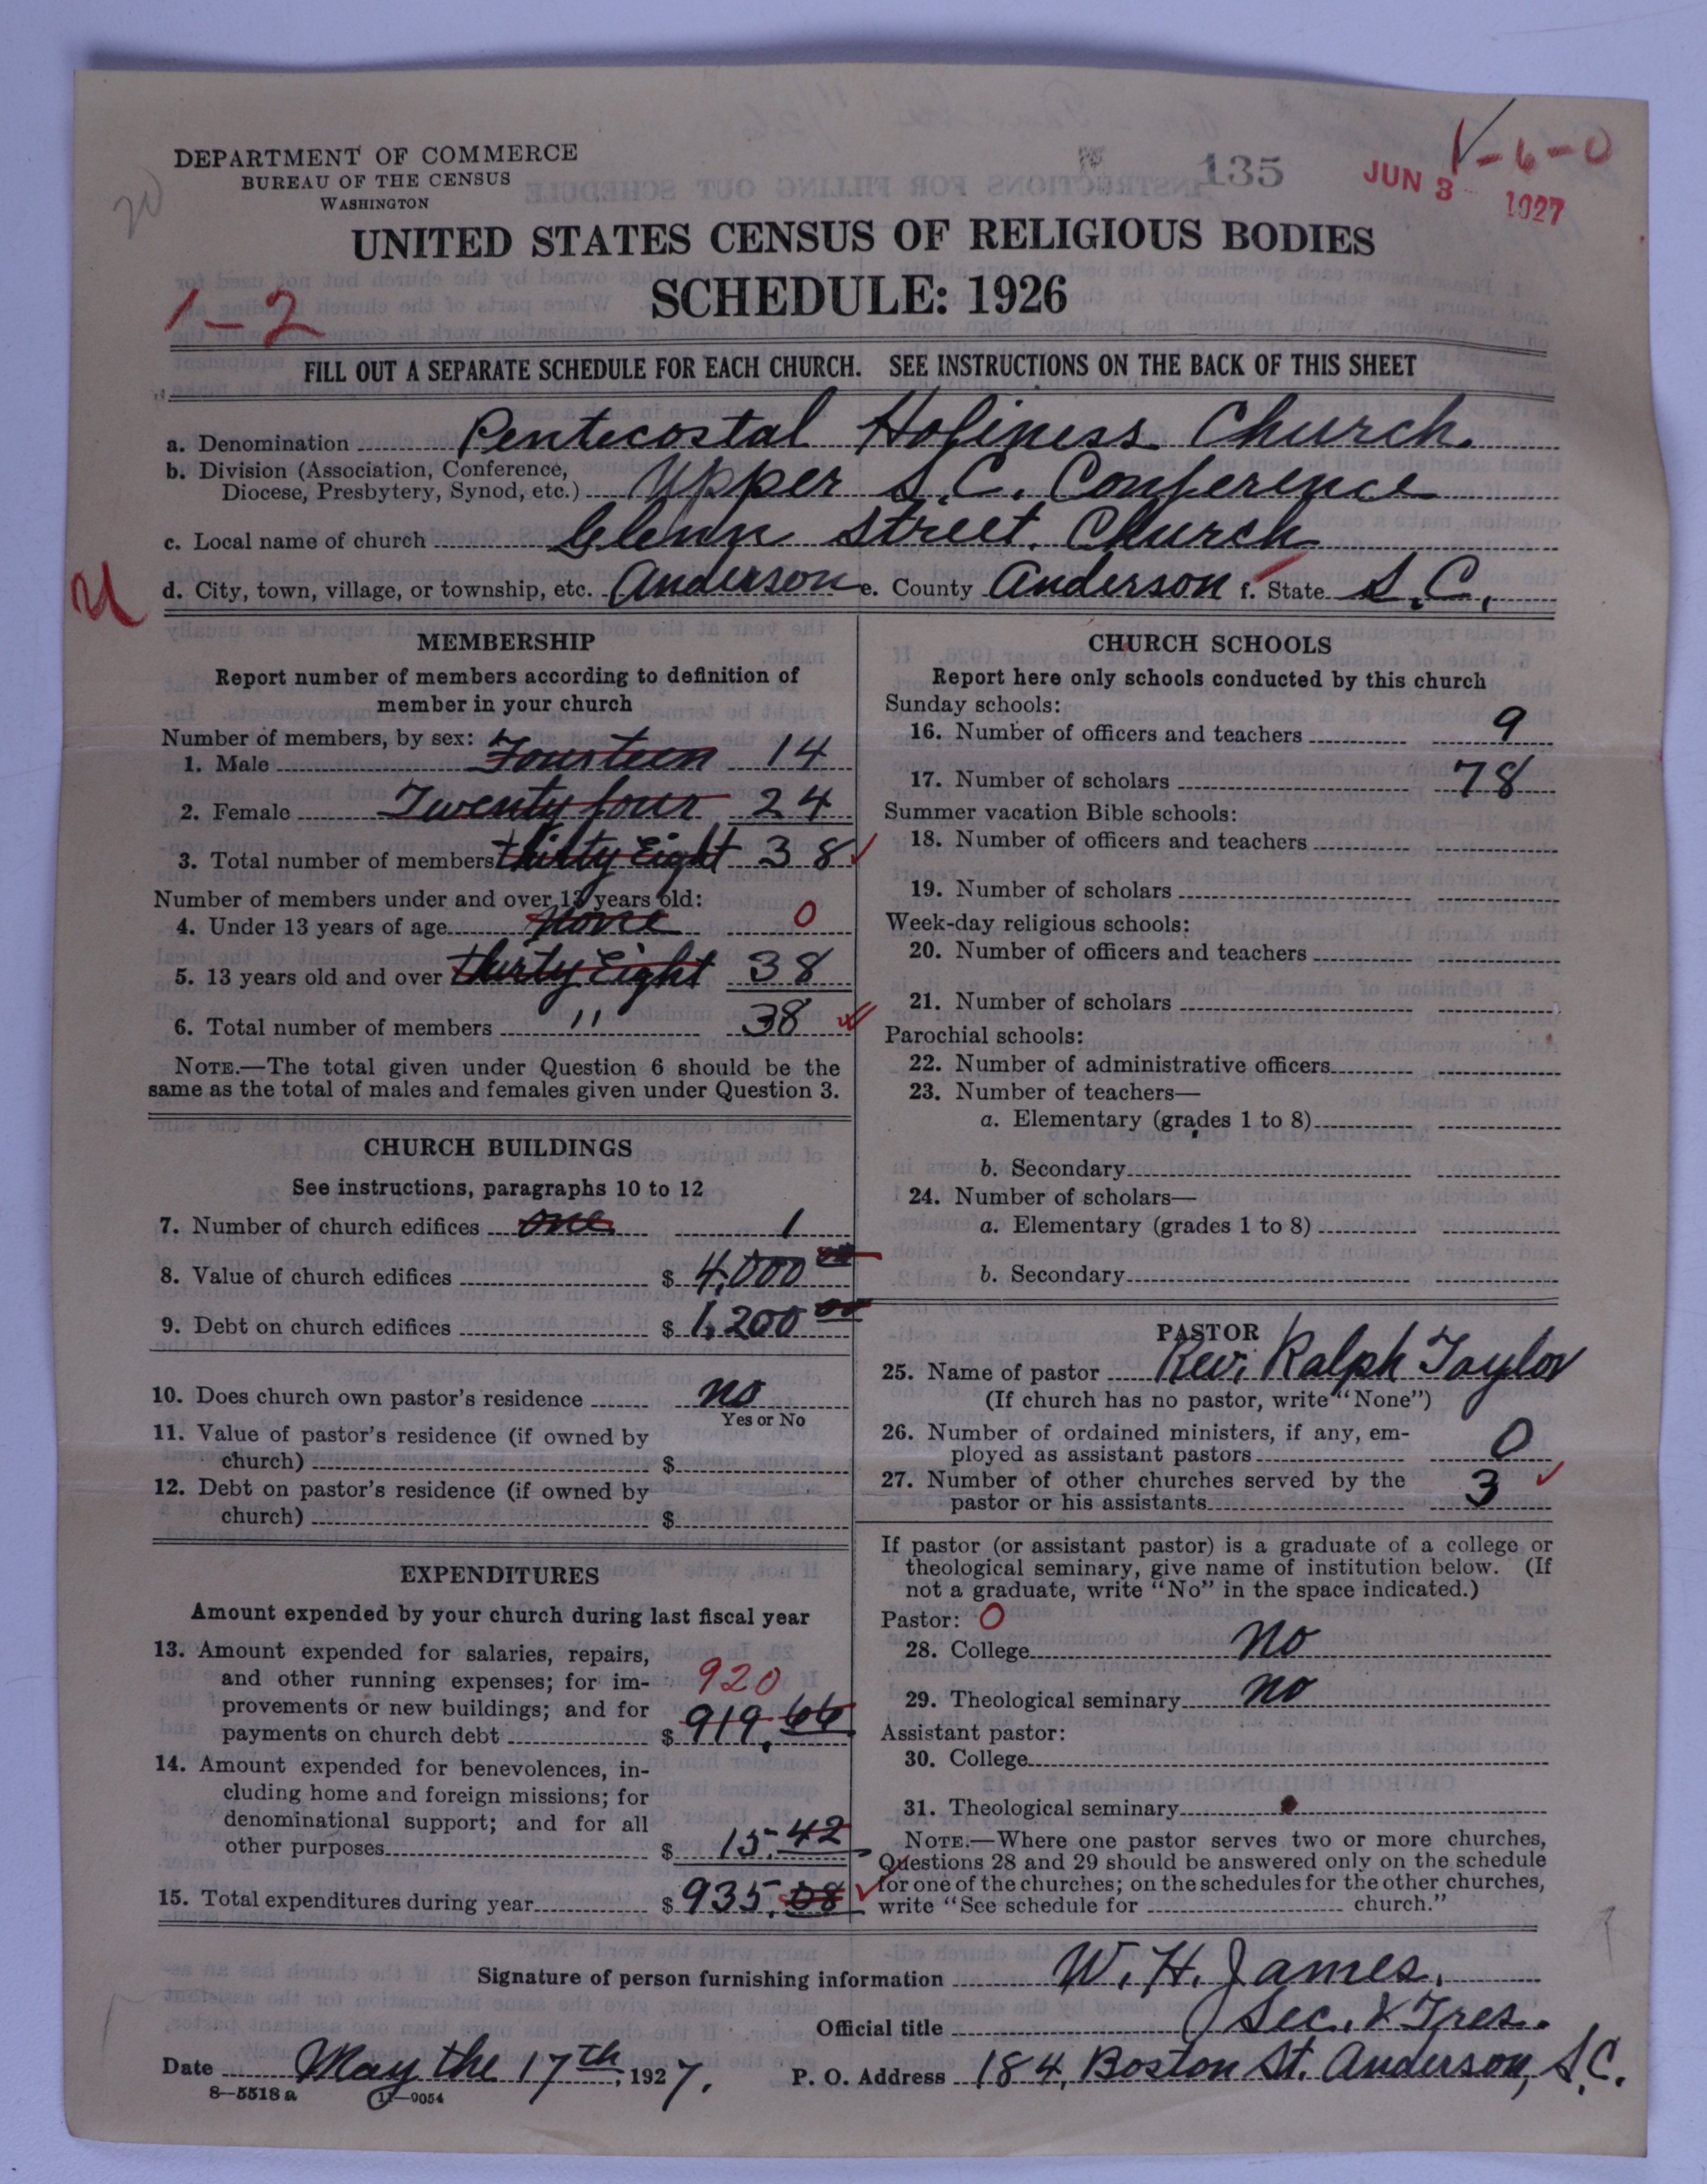 DEPARTMENT OF COMMERCE
BUREAU OF THE CENSUS
WASHINGTON
20
135
V-6-0
JUN 3 1927
UNITED STATES CENSUS OF RELIGIOUS BODIES
SCHEDULE: 1926
1-2
FILL OUT A SEPARATE SCHEDULE FOR EACH CHURCH. SEE INSTRUCTIONS ON THE BACK OF THIS SHEET
a. Denomination Pentecostal Holiness Church.
b. Division (Association, Conference,
Diocese, Presbytery, Synod, etc.) Upper S.C. Conference
c. Local name of church Glenn Street. Church
U
d. City, town, village, or township, etc. Anderson e. County Anderson f. State S.C.
MEMBERSHIP
Report number of members according to definition of
member in your church
Number of members, by sex:
1. Male Fourteen 14
2. Female Twenty four 24
3. Total number of members thirty Eight 38
Number of members under and over 13 years old:
4. Under 13 years of age None 0
5. 13 years old and over thirty Eight 38
6. Total number of members " 38
NOTE.—The total given under Question 6 should be the
same as the total of males and females given under Question 3.
CHURCH BUILDINGS
See instructions, paragraphs 10 to 12
7. Number of church edifices one 1
8. Value of church edifices $ 4,000 00
9. Debt on church edifices $ 1,200 00
10. Does church own pastor's residence no
Yes or No
11. Value of pastor's residence (if owned by
church) $
12. Debt on pastor's residence (if owned by
church) $
EXPENDITURES
Amount expended by your church during last fiscal year
13. Amount expended for salaries, repairs,
and other running expenses; for im- 920
provements or new buildings; and for
payments on church debt $ 919.66
14. Amount expended for benevolences, in-
cluding home and foreign missions; for
denominational support; and for all
other purposes $ 15.42
15. Total expenditures during year $ 935.08
CHURCH SCHOOLS
Report here only schools conducted by this church
Sunday schools:
16. Number of officers and teachers 9
17. Number of scholars 78
Summer vacation Bible schools:
18. Number of officers and teachers
19. Number of scholars
Week-day religious schools:
20. Number of officers and teachers
21. Number of scholars
Parochial schools:
22. Number of administrative officers
23. Number of teachers—
a. Elementary (grades 1 to 8)
b. Secondary
24. Number of scholars—
a. Elementary (grades 1 to 8)
b. Secondary
PASTOR
25. Name of pastor Rev. Ralph Taylor
(If church has no pastor, write "None")
26. Number of ordained ministers, if any, em-
ployed as assistant pastors 0
27. Number of other churches served by the
pastor or his assistants 3
If pastor (or assistant pastor) is a graduate of a college or
theological seminary, give name of institution below. (If
not a graduate, write "No" in the space indicated.)
Pastor: 0
28. College no
29. Theological seminary no
Assistant pastor:
30. College
31. Theological seminary
NOTE.—Where one pastor serves two or more churches,
Questions 28 and 29 should be answered only on the schedule
for one of the churches; on the schedules for the other churches,
write "See schedule for church."
Signature of person furnishing information W. H. James.
Official title Sec. & Tres.
Date May the 17th, 1927. P. O. Address 184, Boston St. Anderson, S.C.
8—5518 a 11—9054